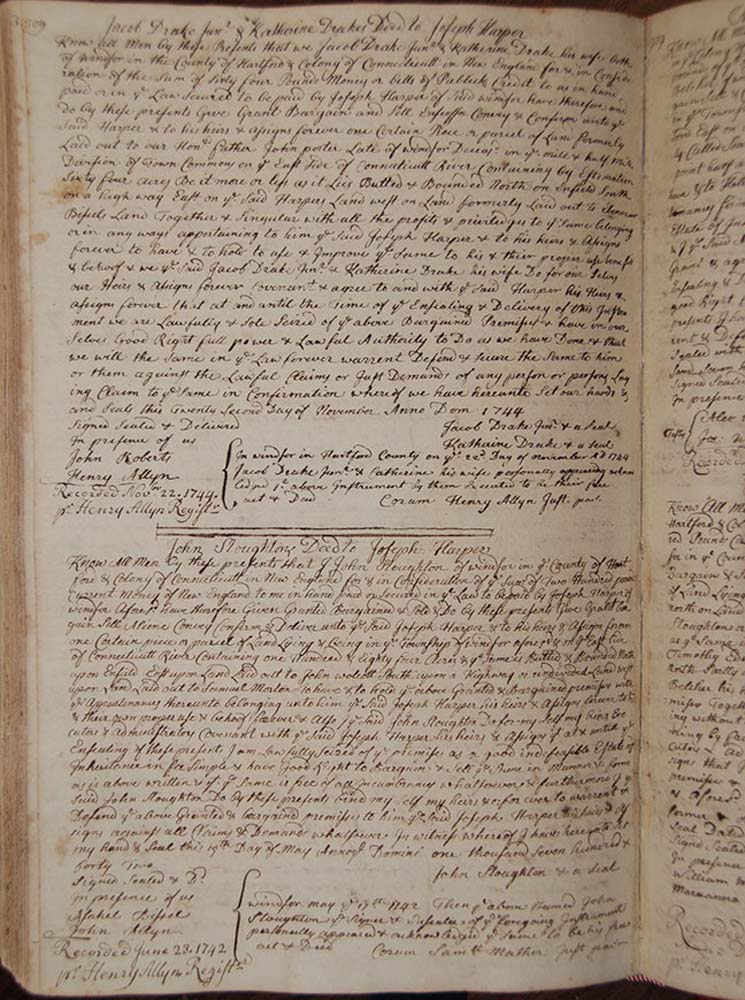 Jacob Drake Junr & Katherine Drakes Deed to Joseph Harper
Know All Men by these Presents that we Jacob Drake Junr & Katherine Drake his wife both
of Windsor in the County of Hartford & Colony of Connecticutt in New England for & in Conside
ration of the Sum of Sixty four Pound Money or bills of Publick Credit to us in hand
paid or in ye Law Secured to be paid by Joseph Harper of Said windsor have therefore and
do by these presents Give Grant Bargain and Sell Enfeoffe Convey & Confirm unto ye
Said Harper & to his heirs & Asigns forever one Certain Piece or parcel of Land formerly
Laid out to our Hond father John porter Late of Windsor Deceasd in ye mile & half mile
Division of Town Commons on ye East Side of Connaticutt River Containing by Estimation
Sixty four acres Be it more or less as it Lies Butted & Bounded North on Enfield South
on a high way East on ye Said Harpers Land west on Land formerly Laid out to
Bissels Land Together & Singular with all the profits & priviledges to ye Same belonging
or in any ways appertaining to him ye Said Joseph Harper & to his heirs & Asigns
forever to have & to hold to use & Improve ye Same to his & their proper use benefit
& behoof & we ye Said Jacob Drake Junr & Katherine Drake his wife Do for our Selves
our Heirs & Asigns forever Covenant & agree to and with ye Said Harper his Heirs &
asigns forever that at and until the Time of ye Ensealing & Delivery of this Instru
ment we are Lawfully & Sole Seized of ye above Bargained Premises & have in our
Selves Good Right full power & Lawful Authority to Do as we have Done & that
we will the Same in ye Law forever warrent Defend & secure the Same to him
or them against the Lawful Claims or Just Demands of any person or persons Lay
ing Claim to ye Same in Confirmation whereof we have hereunto Set our hands &
and Seals this Twenty Second Day of November Anno Dom 1744
Signed Sealed & Delivered
In presence of us
John Roberts
Henry Allyn
Recorded Novm 22. 1744.
pr Henry Allyn Registr
Jacob Drake Junr & a seal
Katherine Drake & a seal
In windsor in Hartford County on ye 22d Day of november AD 1744
Jacob Drake Junr & Catherine his wife personally appearing acknow
ledged ye above Instrument by them Executed to be their free
act & Deed Coram Henry Allyn Just. peac
John Stoughtons Deed to Joseph Harper
Know All Men by these presents that I John Stoughton of windsor in ye County of Hart
ford & Colony of Connecticutt in New England for & in Consideration of ye Sum of Two Hundred pound
Current Money of New England to me in hand paid or Secured in ye Law to be paid by Joseph Harper of
windsor Aforesd have therefore Given Granted Bargained & Sold & Do by these presents Give Grant Bar
gain Sell Aliene Convey Confirm & Deliver unto ye Said Joseph Harper & to his heirs & Asigns forever
one Certain piece or parcel of Land Lying & Being in ye Township of windsor aforesd & on ye East Side
of Connecticutt River Containing one Hundred & eighty four Acres & ye Same is Butted & Bounded North
upon Enfield East upon Land Laid out to John wolcott South upon a Highway or undivided Land west
upon Land Laid out to Samuel Morton To have & to hold ye above Granted & Bargained premises with
ye Appurtenances thereunto belonging unto him ye Said Joseph Harper his heirs & Asigns forever to his
& their own proper use & behoof forever & Also I ye Said John Stoughton Do for my Self my heirs Exe
cutors & Administrators Covenant with ye Said Joseph Harper his heirs & Asigns yt at & until ye
Ensealing of these present I am Lawfully Seized of ye premises as a good indefeasible Estate of
Inheritance in fee Simple & have Good Right to Bargain & Sell ye Same in Manner & form
as is above written & yt ye Same is free of all Incumbrances whatsoever & furthermore I ye
Said John Stoughton Do by these presents bind my Self my heirs & forever to warrent &
Defend ye above Granted & bargained premises to him ye Said Joseph Harper his heirs & As
signs against all Claims & Demands whatsoever In witness whereof I have hereunto Set
my hand & Seal this 19th Day of May Annoqe Domini one thousand Seven hundred &
forty Two
Signed Sealed & Dd
In presence of us
John Allyn
Recorded June 23. 1742
pr Henry Allyn Registr
John Stoughton & a seal
windsor may ye 19th 1742 Then ye above Named John
Stoughton ye Signer & Sealer of ye foregoing Instrument
personally appeared & acknowledged ye Same to be his free
act & Deed Coram Samll Mather Just peac